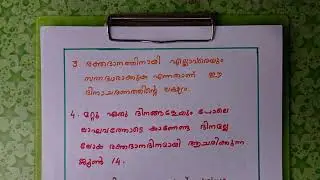 3. രക്തദാനത്തിനായി എല്ലാവരെയും
സന്നദ്ധരാക്കുക എന്നതാണ് ഈ
ദിനാചരണത്തിന്റെ ലക്ഷ്യം.
4. മറ്റു ഏതു ദിനങ്ങളേയും പോലെ
ദിനമല്ല
ലോക രക്തദാനദിനമായി ആചരിക്കുന്ന
ജൂൺ 14.